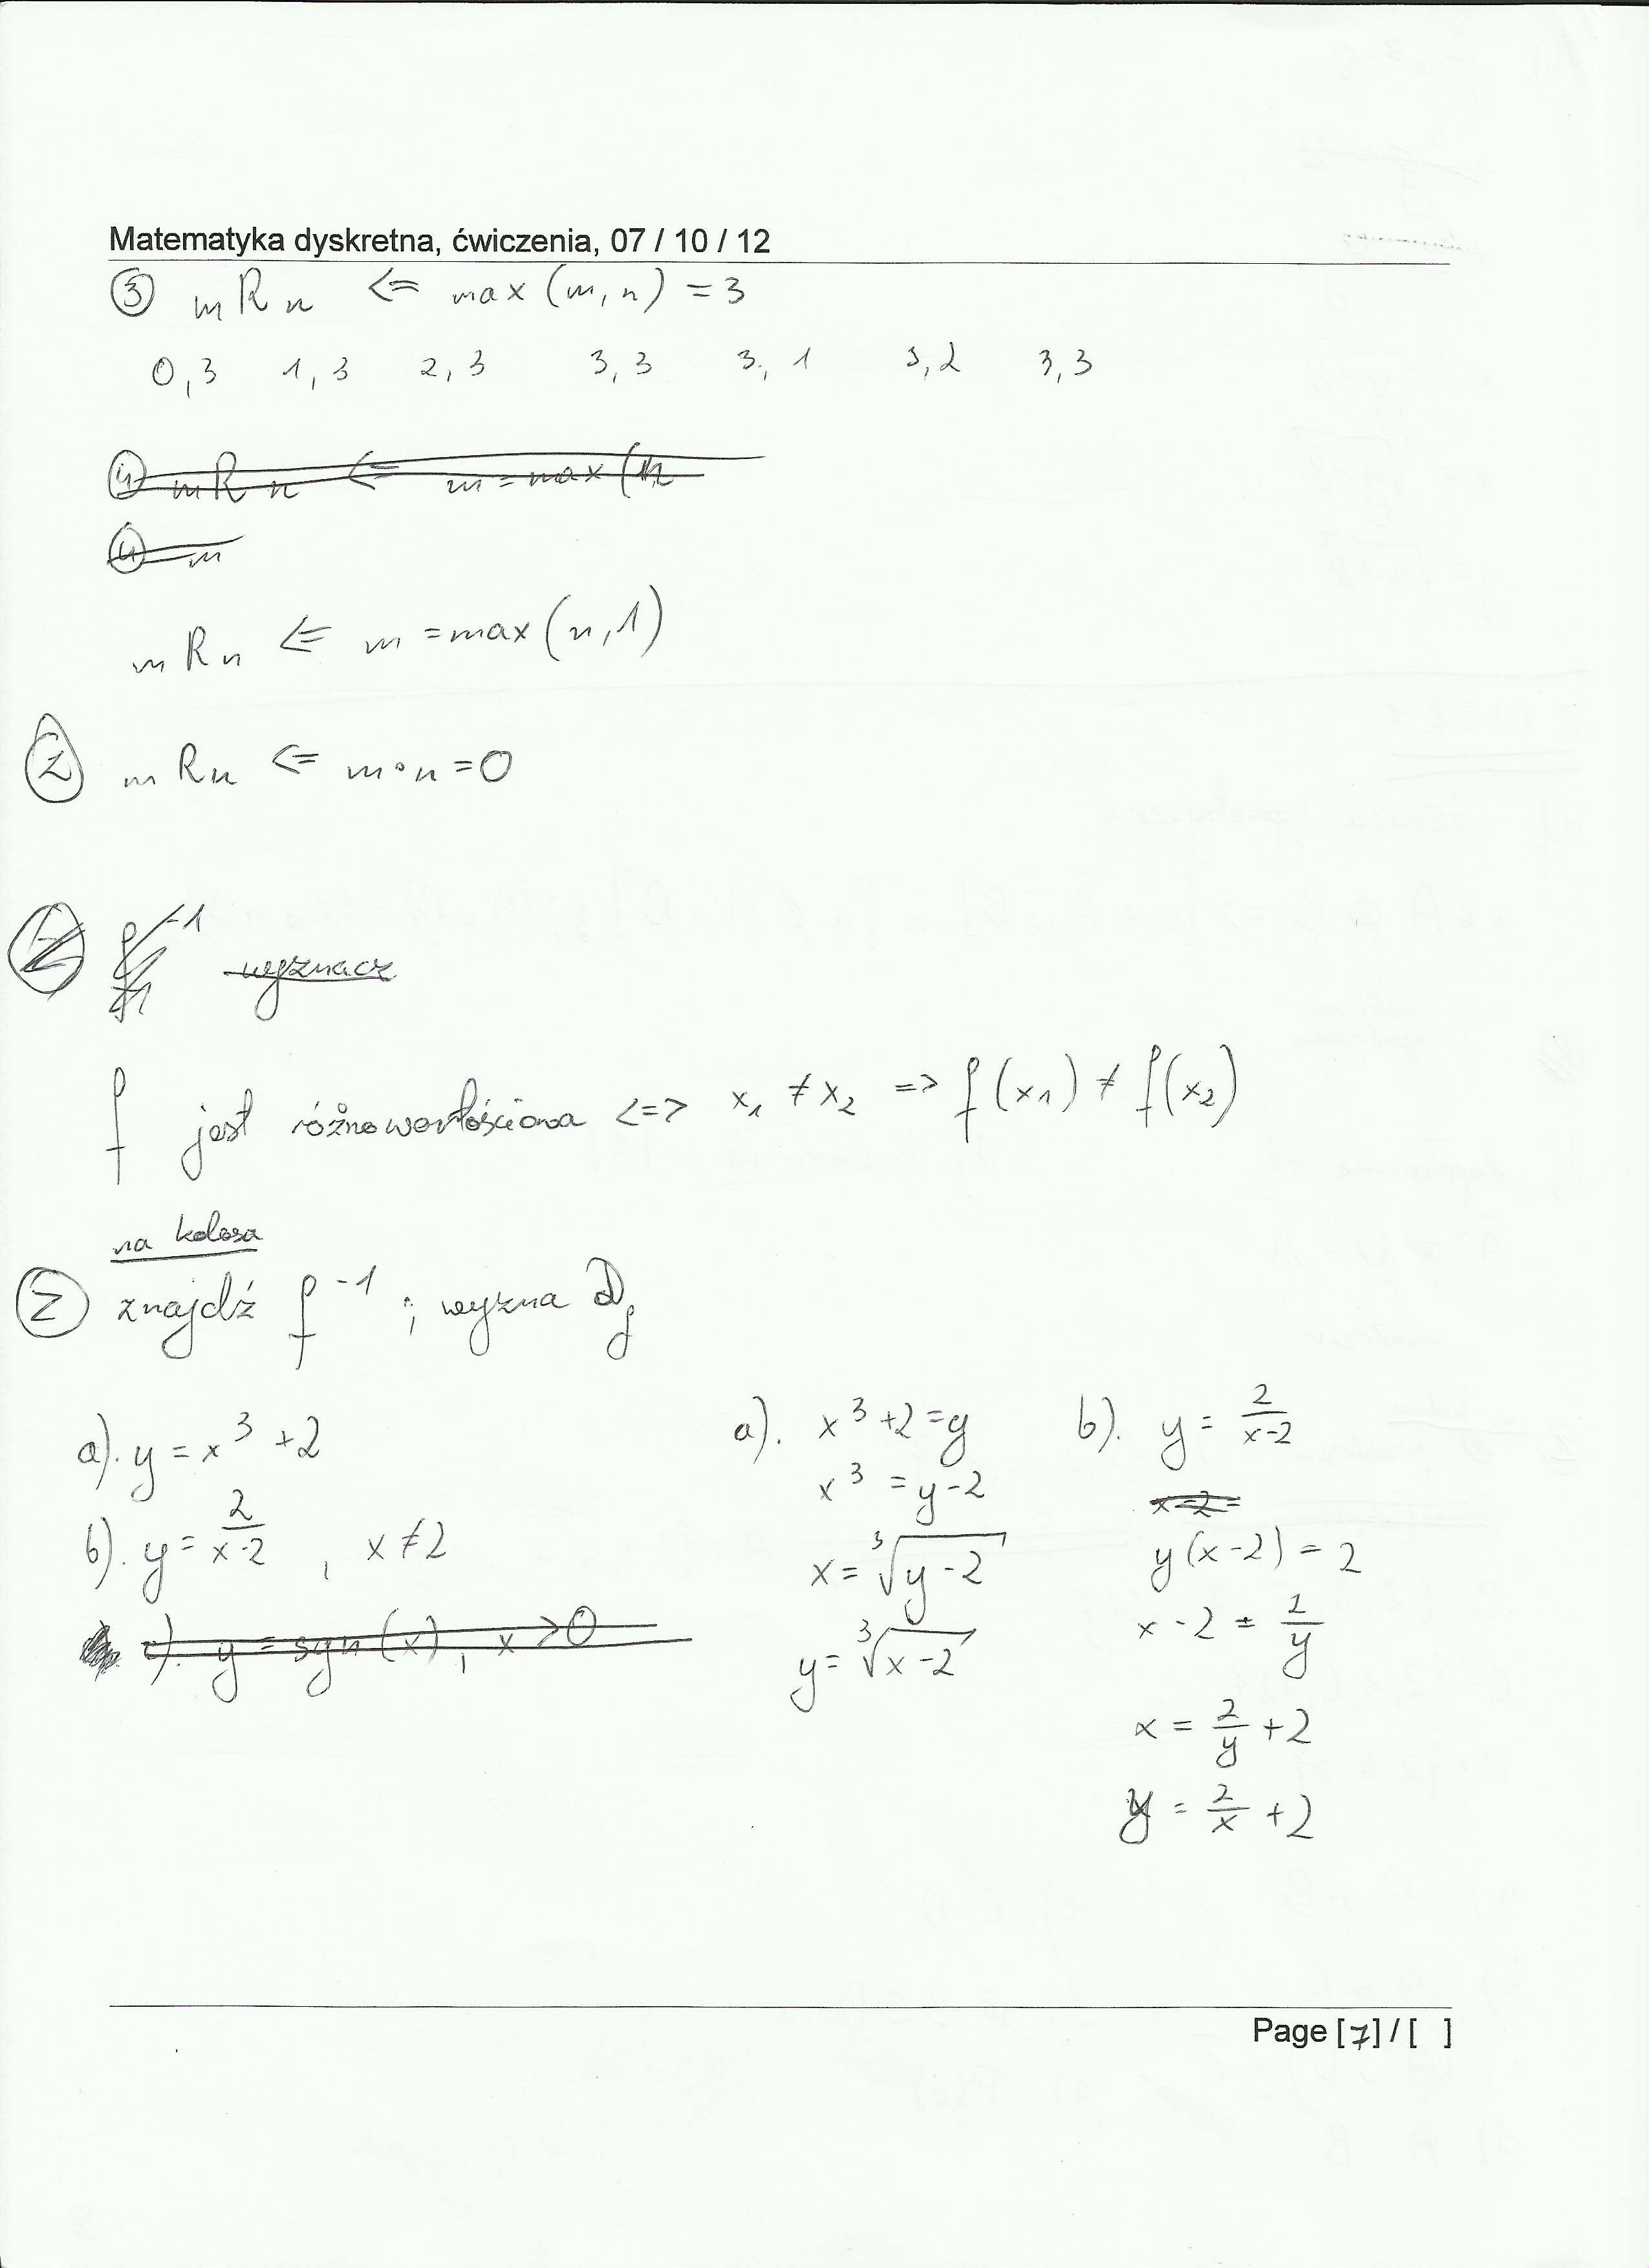 Matematyka dyskretna, ćwiczenia, 07 / 10 / 12
③ m R n <= max (m, n) = 3
0,3 1,3 2,3 3,3 3,1 3,2 3,3
④ m R n <= m = max (
④ m
m R n <= m = max (n, 1)
Ⓩ m R n <= m · n = 0
f⁻¹ wyznacz
f jest różnowartościowa <=> x₁ ≠ x₂ => f(x₁) ≠ f(x₂)
na kolosa
Ⓩ znajdź f⁻¹ ; wyzna D_f
a). y = x³ + 2
b). y = 2/(x-2) , x ≠ 2
c). y = sgn (x), x > 0
a). x³ + 2 = y
x³ = y - 2
x = ³√(y - 2)
y = ³√(x - 2)
b). y = 2/(x-2)
x - 2 =
y (x - 2) = 2
x - 2 = 2/y
x = 2/y + 2
y = 2/x + 2
Page [7] / [ ]